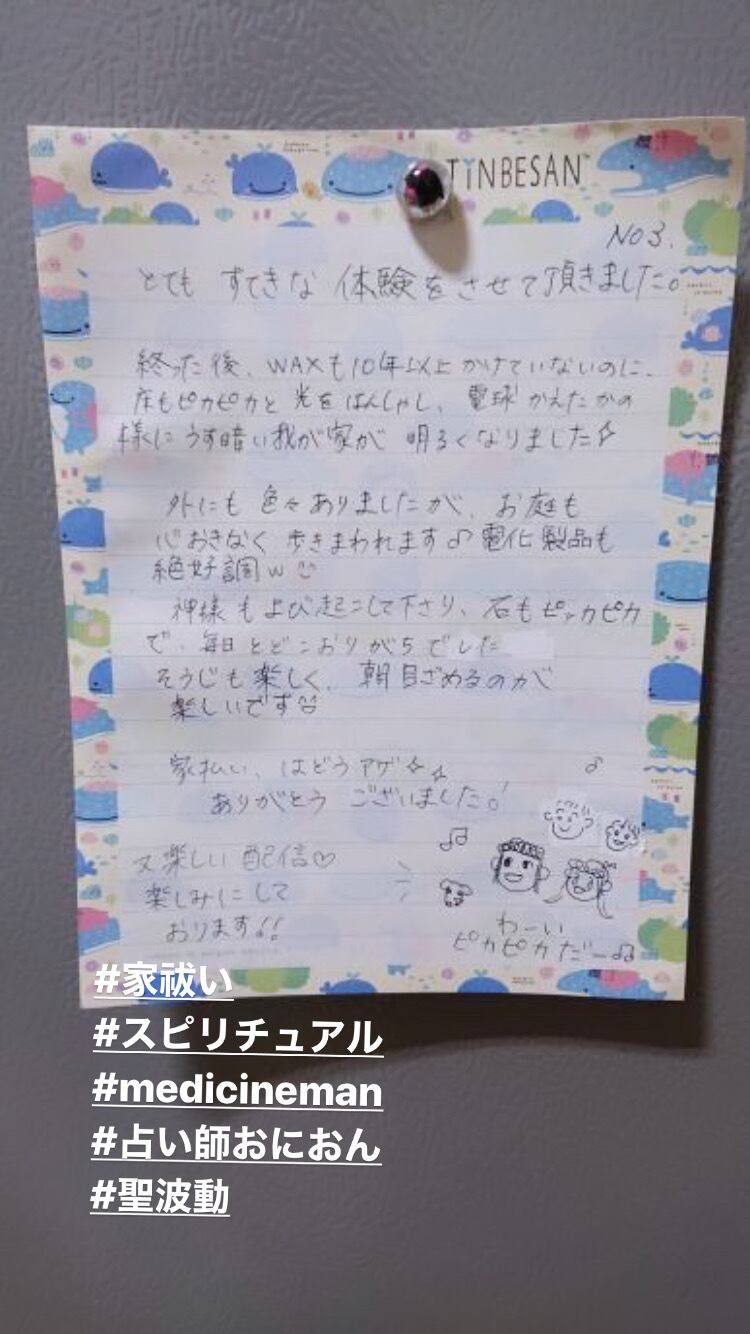 JINBESAN™
NO3.
とても すてきな 体験をさせて頂きました。
終った後、WAXも10年以上かけていないのに、
床もピカピカと 光をはんしゃし、電球かえたかの
様に うす暗い我が家が 明るくなりました☆
外にも 色々ありましたが、お庭も
心おきなく 歩きまわれます♪ 電化製品も
絶好調w
神様もよび起こして下さり、石もピッカピカ
で、毎日とどこおりがちでした
そうじも楽しく、朝目ざめるのが
楽しいです
家払い、はどうアゲ☆☆
ありがとう ございました。
又楽しい配信♡
楽しみにして
おります!!
わーい
ピカピカだー♫
#家祓い
#スピリチュアル
#medicineman
#占い師おにおん
#聖波動